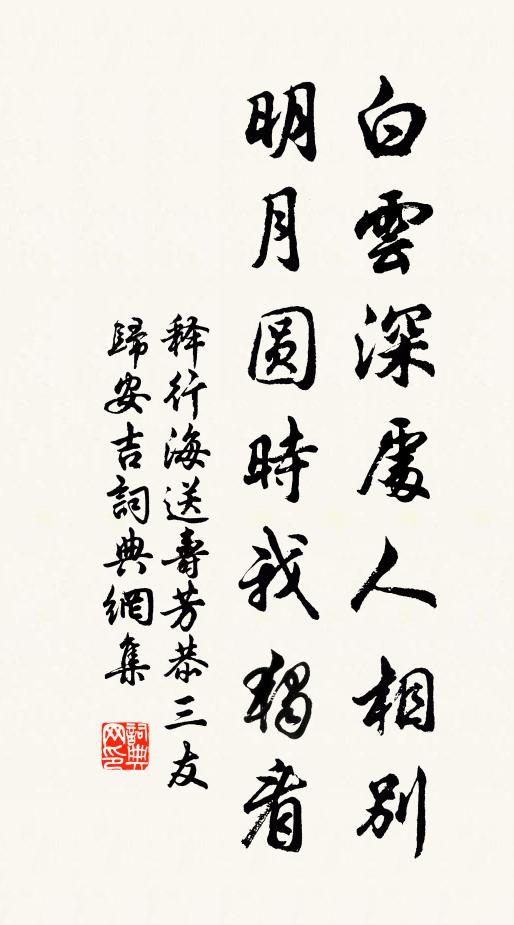 白雲深處人相別
明月圆時我獨看
释行海送壽芳恭三友
歸安吉詞典網集
詞典网印